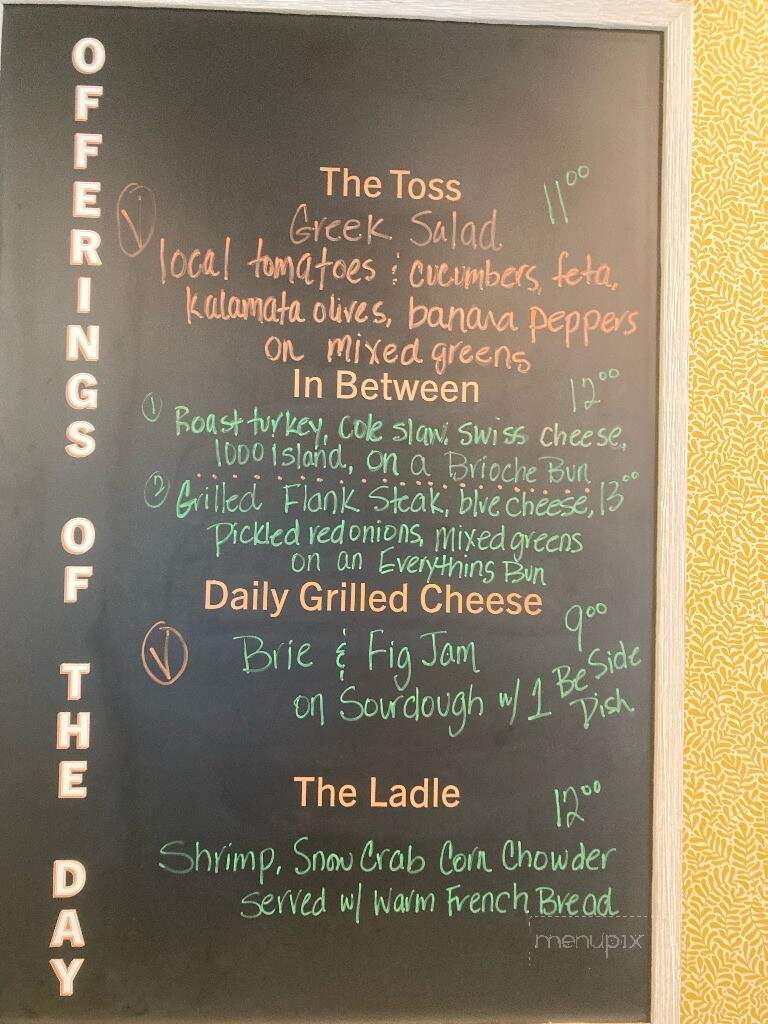 OFFERINGS OF THE DAY
The Toss
11⁰⁰
V
Greek Salad
local tomatoes & cucumbers, feta,
kalamata olives, banana peppers
on mixed greens
In Between
12⁰⁰
① Roast turkey, cole slaw, swiss cheese,
1000 island, on a Brioche Bun
② Grilled Flank Steak, blue cheese, 13⁰⁰
Pickled red onions, mixed greens
on an Everything Bun
Daily Grilled Cheese
9⁰⁰
V
Brie & Fig Jam
on Sourdough w/ 1 Be Side
Dish
The Ladle
12⁰⁰
Shrimp, Snow Crab Corn Chowder
served w/ Warm French Bread
menupix